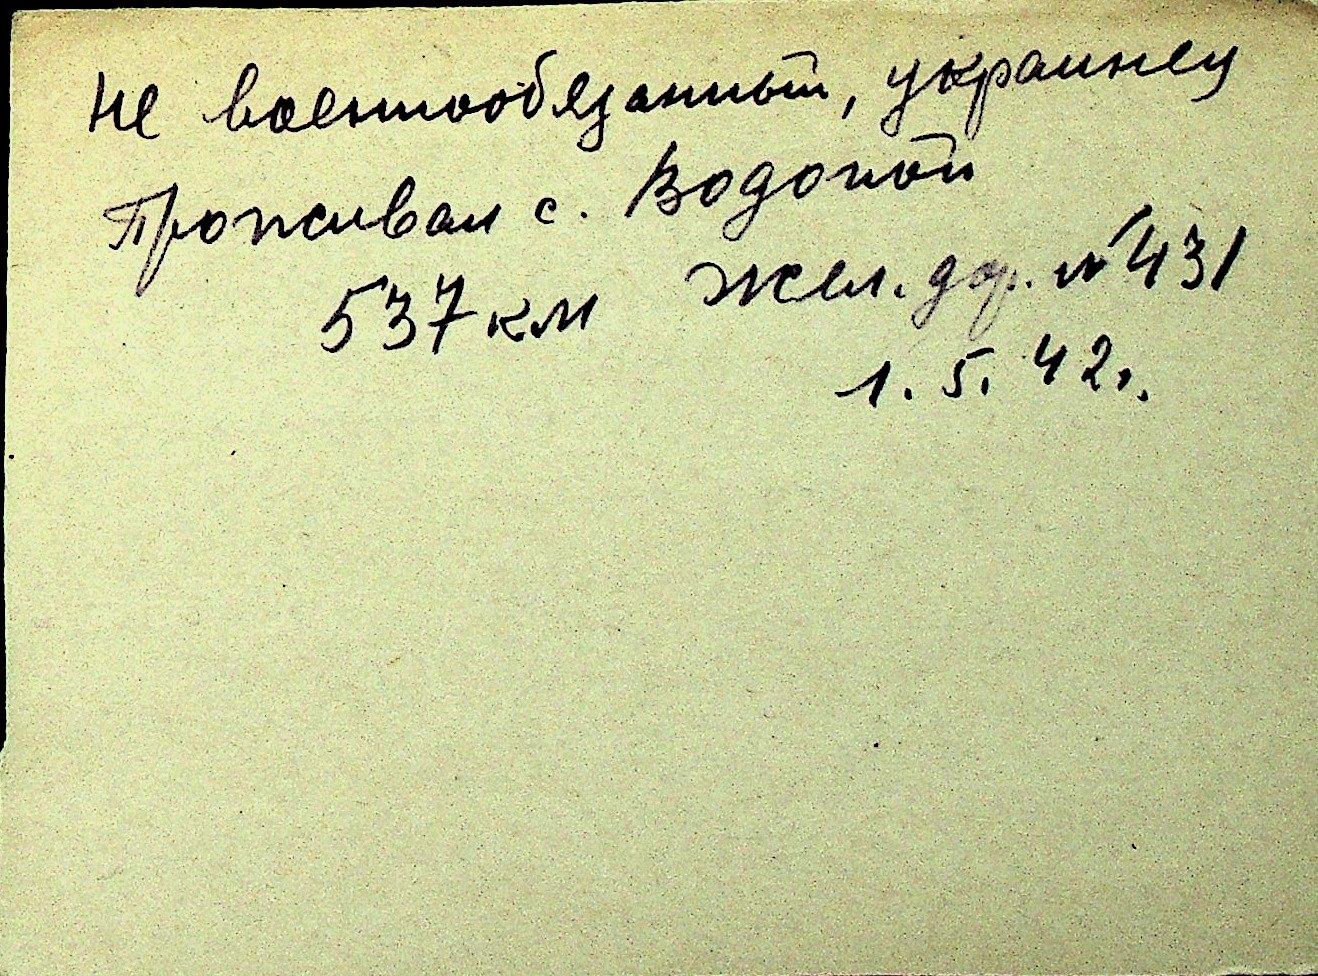 Не военнообязанный, украинец
Проживал с. Водопой
537 км Жел. дор. № 431
1. 5. 42 г.